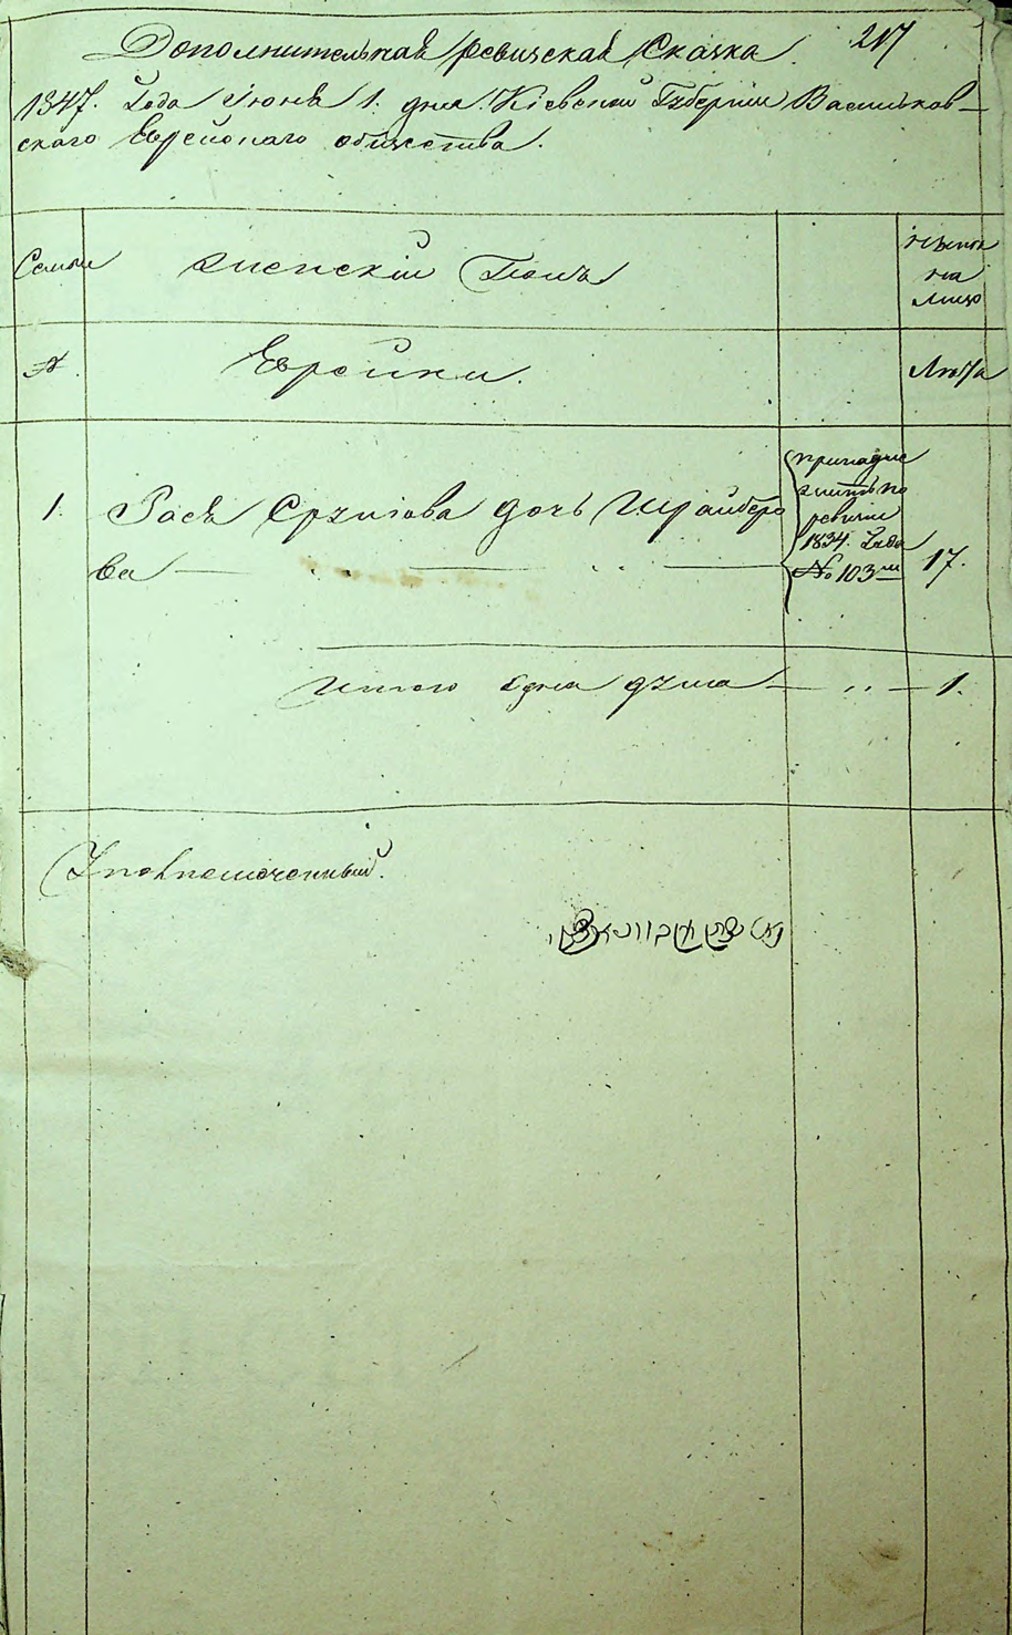 Дополнительная ревизская сказка. 217
1847. Года Июня 1. дня. Кіевской Губерніи Васильков-
скаго Еврейскаго общества.
Семьи
женскій Полъ
на
лицо
№.
Еврейки.
Лѣта
1. Рася Срулiова дочь Шрайберо
ва
принадле
житъ по
ревизіи
1834. Года
№ 103му
17.
Итого одна душа — „ — 1.
Уполномоченный.